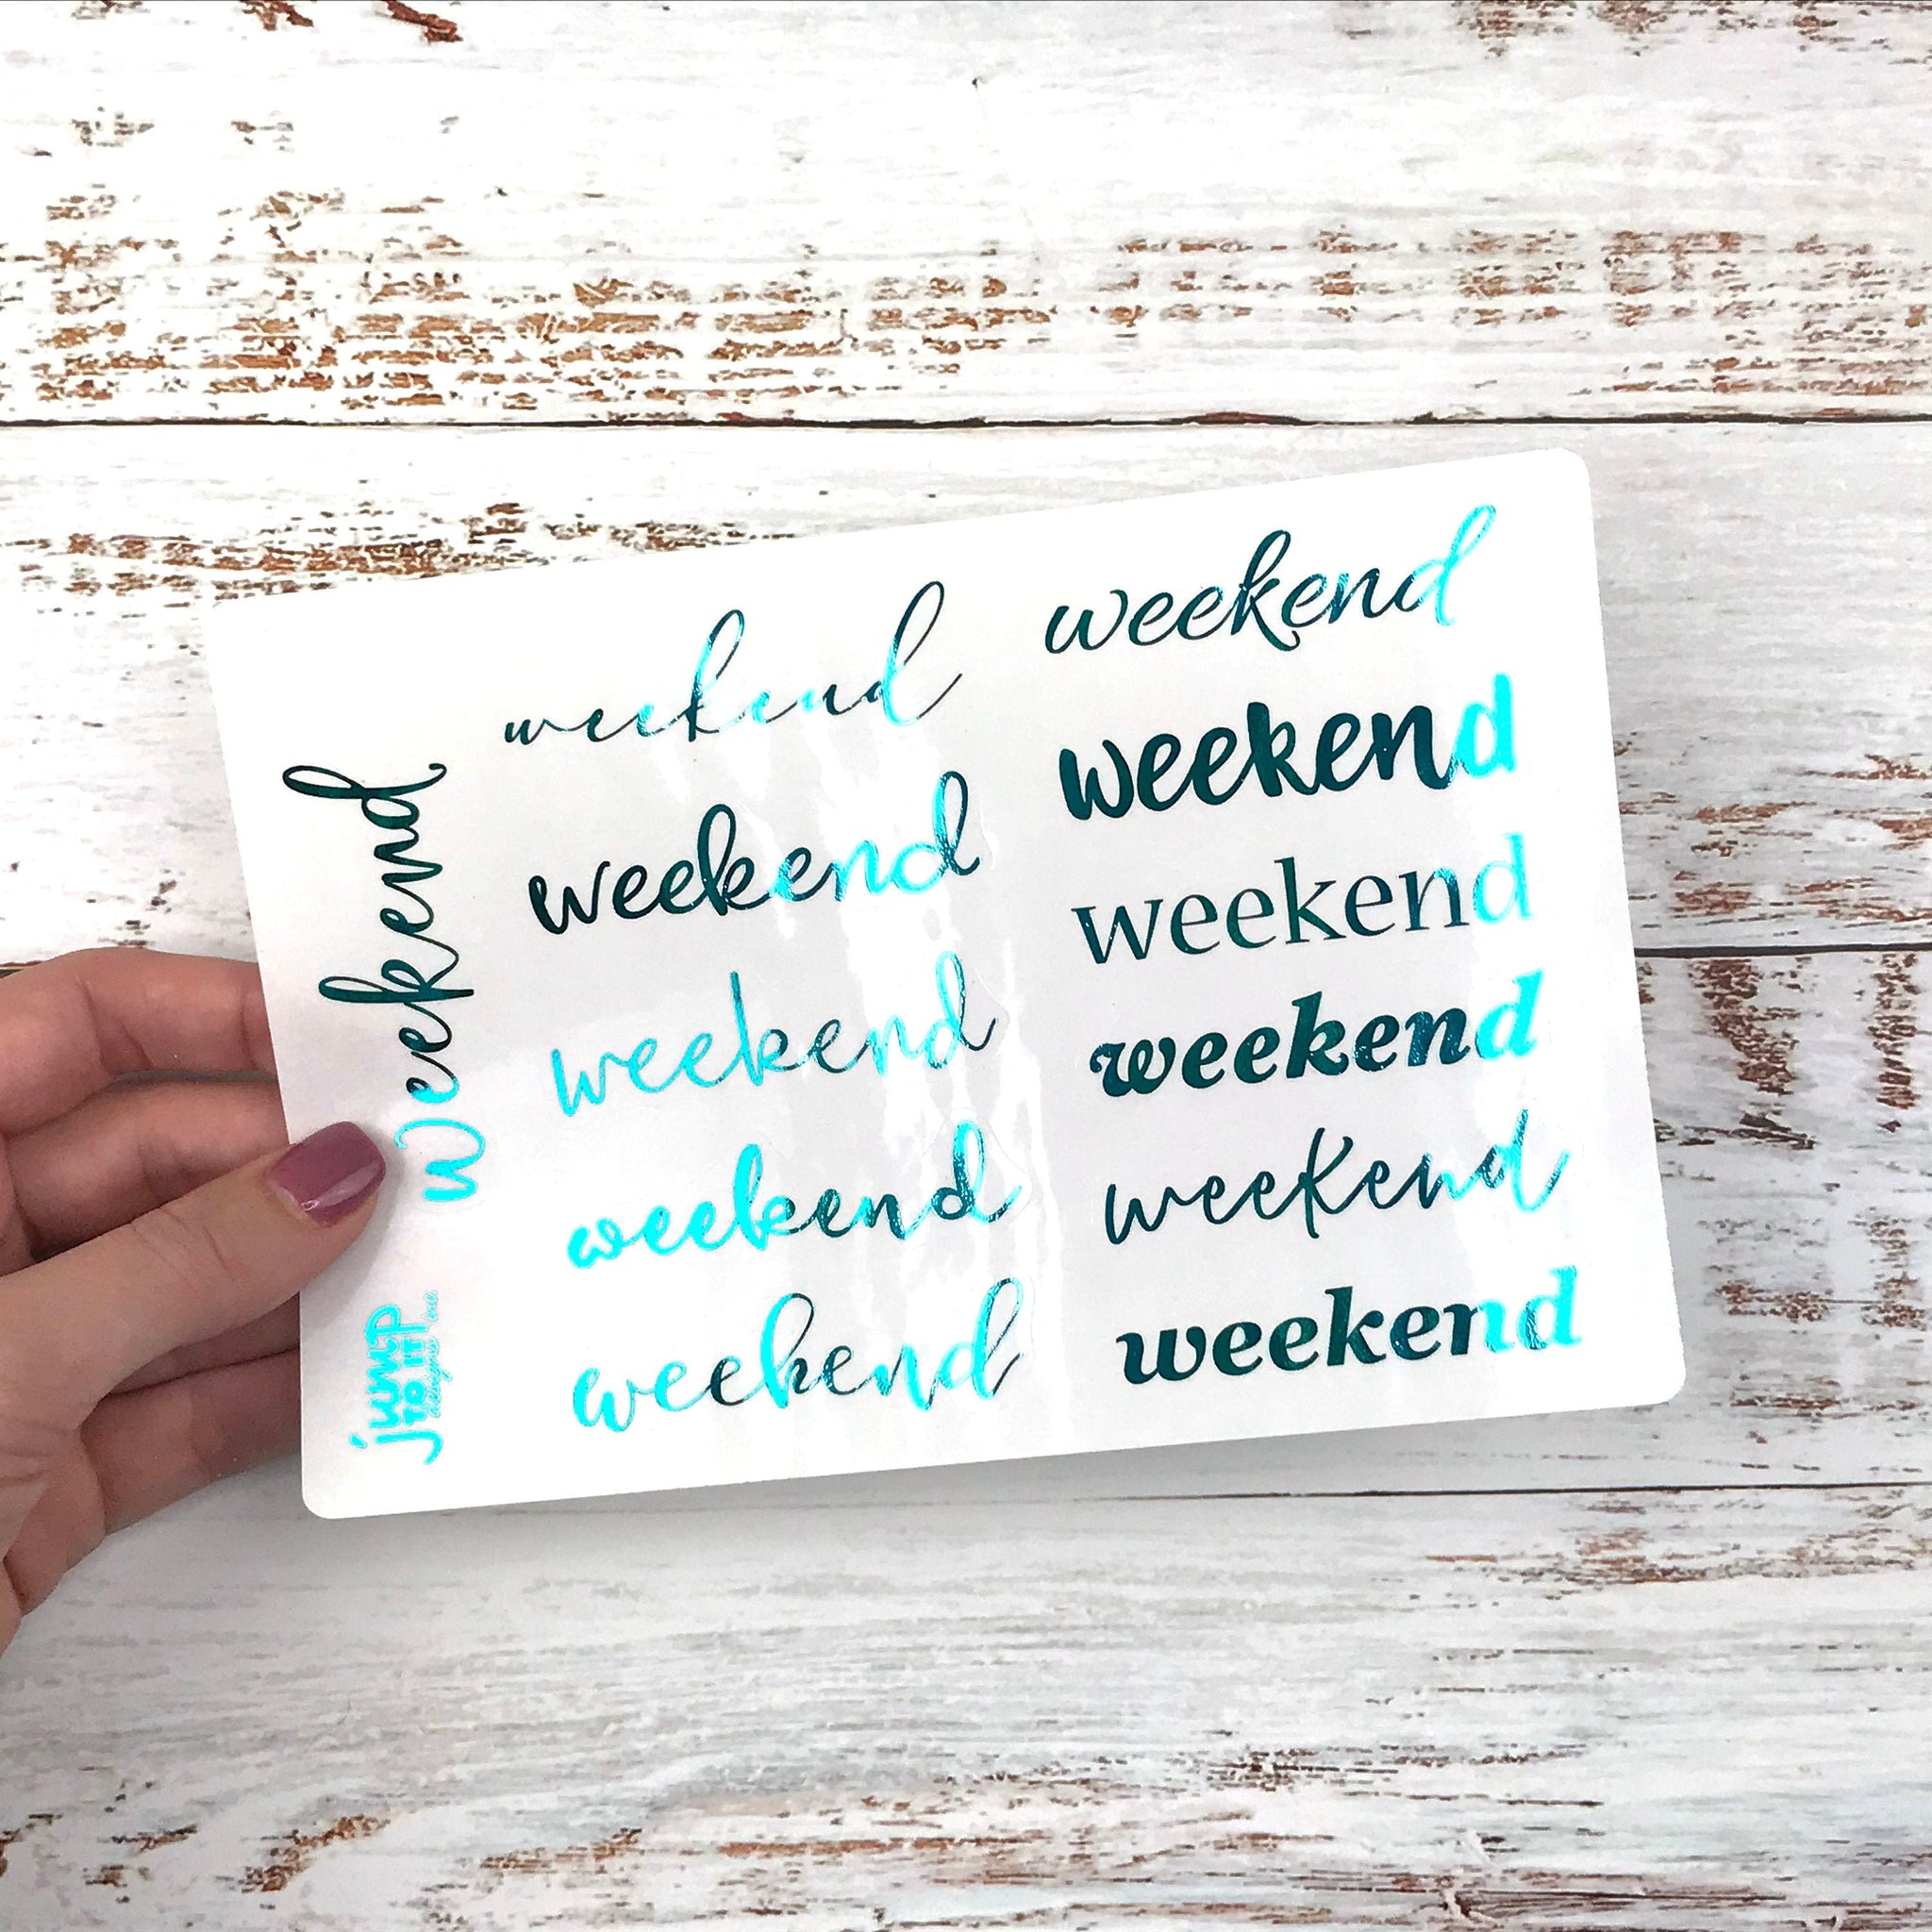 weekend
jump
to it
designs
weekend
weekend
weekend
weekend
weekend
weekend
weekend
weekend
weekend
weekend
weekend